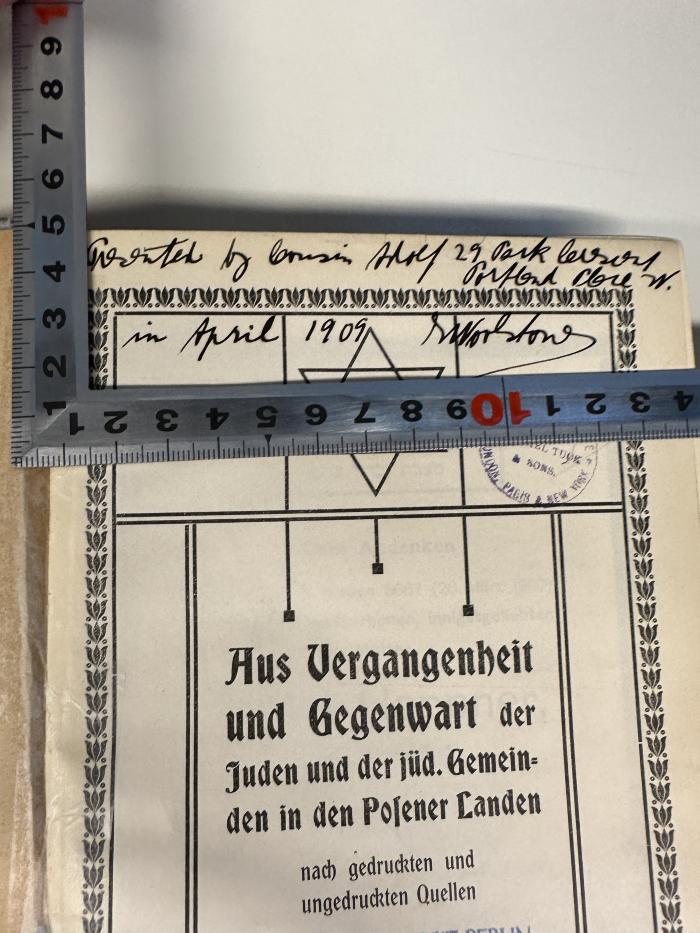 Presented by Cousin Adolf 29 Park Crescent
Portland Place W.
in April 1909 Woolstone
1 2 3 4 5 6 7 8 9 10 1 2 3 4
1 2 3 4 5 6 7 8 9 1
TUCK
& SONS.
LONDON, PARIS & NEW YORK
Aus Vergangenheit
und Gegenwart der
Juden und der jüd. Gemein-
den in den Posener Landen
nach gedruckten und
ungedruckten Quellen
BERLIN